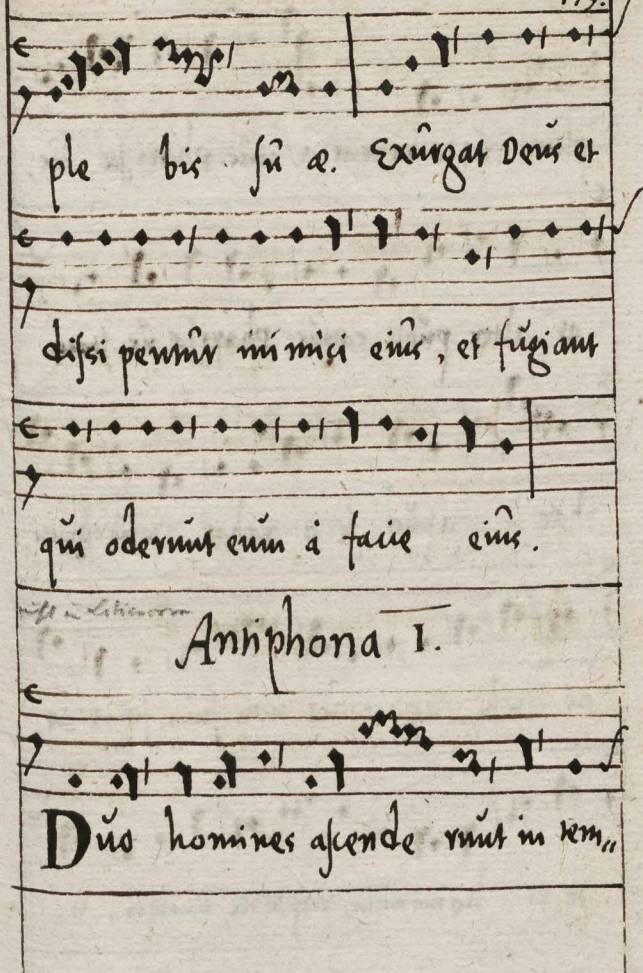 ple bis sũ æ. Exũrgat Deũs et
disſi pentũr inimici eiũs, et fũgiant
qũi oderũnt eũm à facie eiũs.
Antiphona I.
Dũo homines aſcende rũnt in tem„